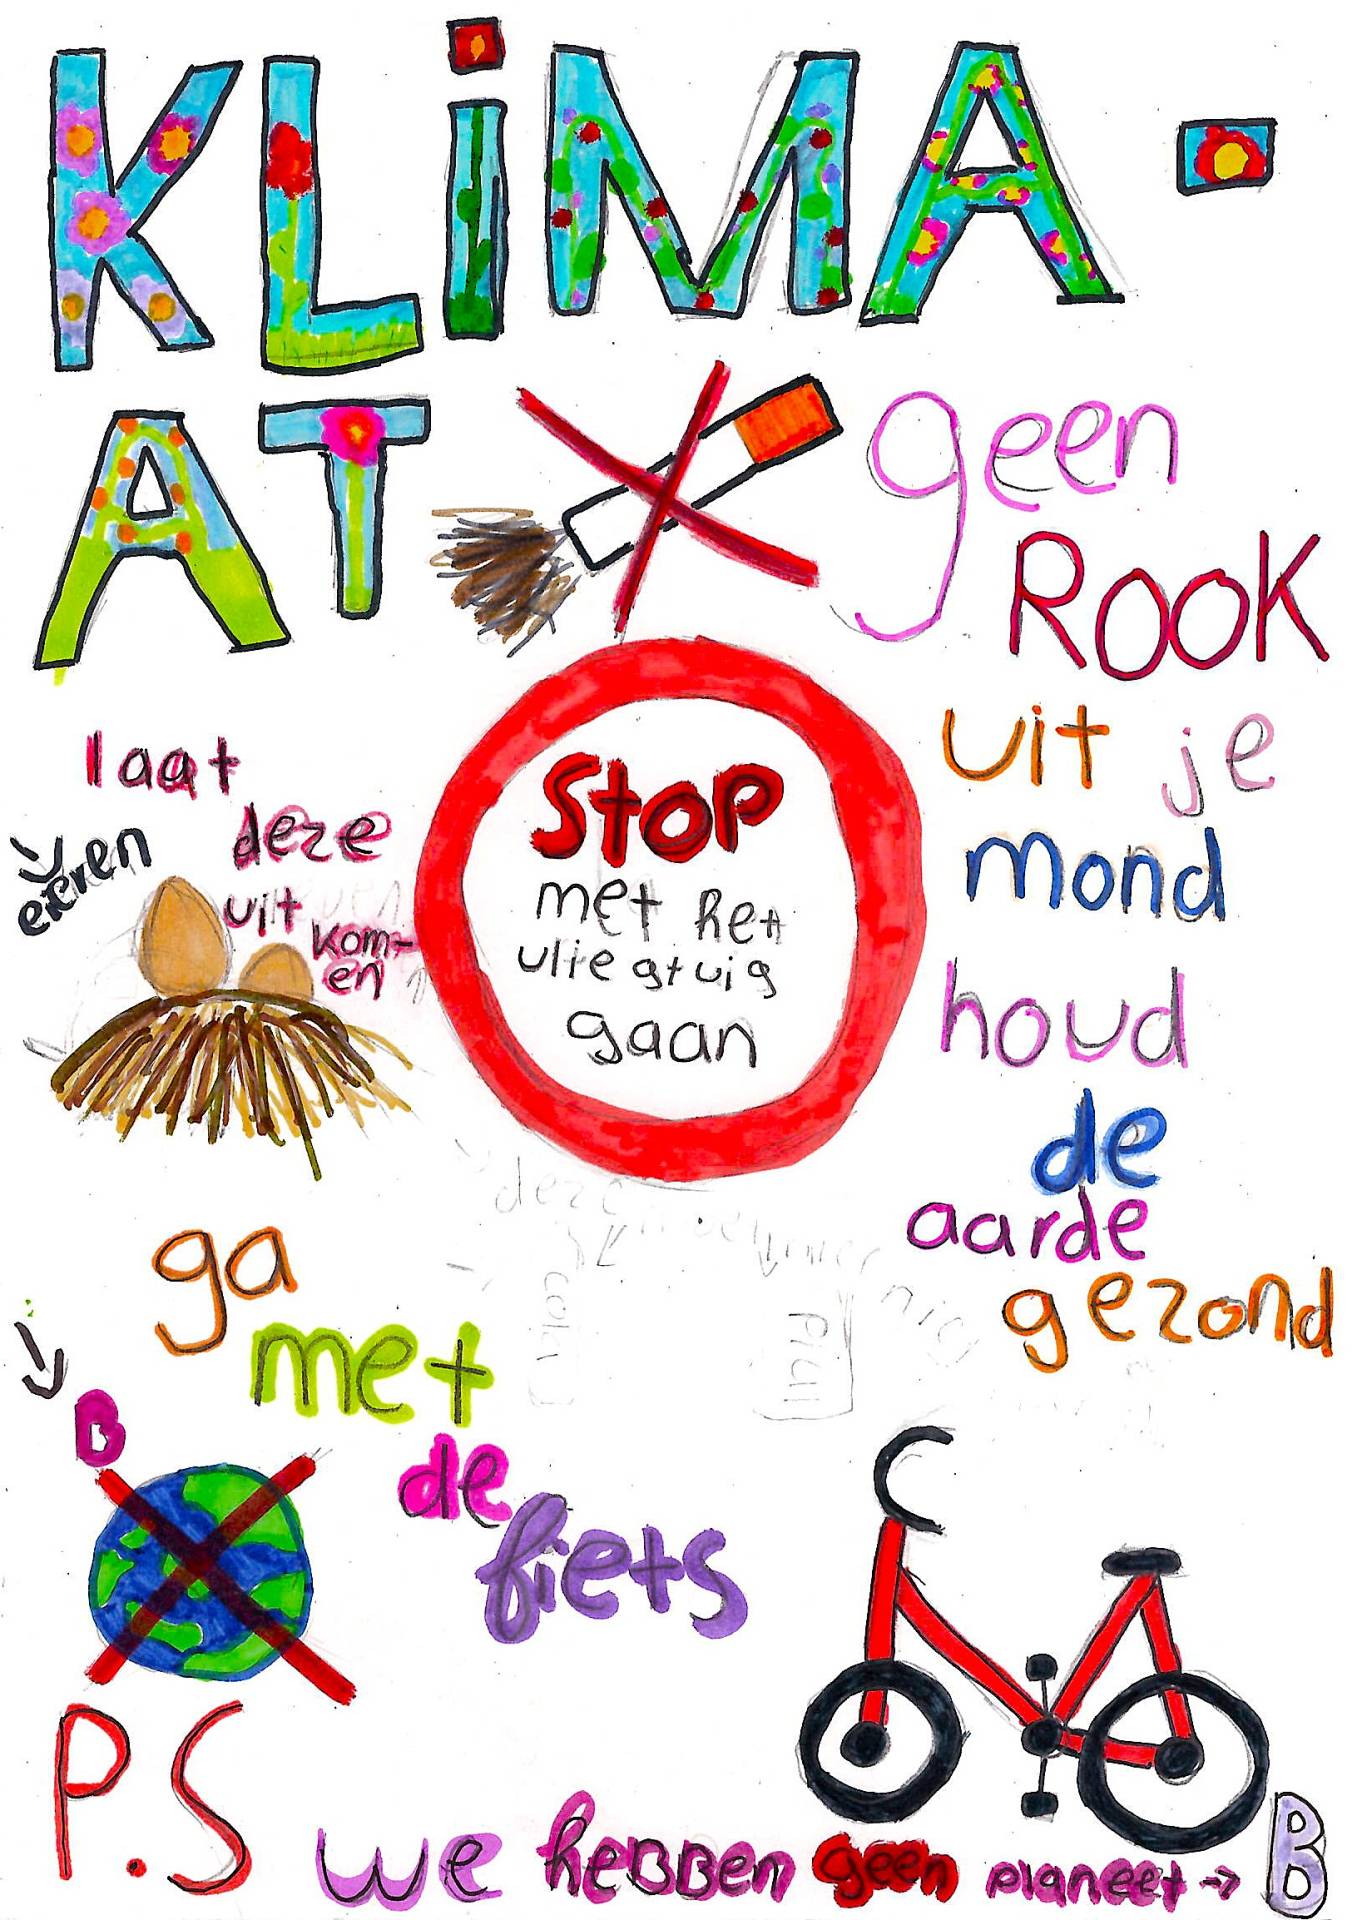 KLiMA-
AT
geen
ROOK
uit je
mond
houd
de
aarde
gezond
laat
deze
eieren
uit
kom-
en
Stop
met het
vliegtuig
gaan
ga
met
de
fiets
B
P.S
we heBBen geen planeet → B